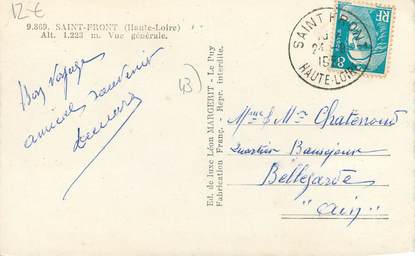 12€
9.869. SAINT-FRONT (Haute-Loire)
Alt. 1.223 m. Vue générale.
43)
Bon voyage
amical souvenir
Ed. de luxe Léon MARGERIT - Le Puy
Fabrication Franç. - Repr. interdite.
SAINT FRONT
HAUTE-LOIRE
8
Mme & Mr Chatenoud
Quartier Beauséjour
Bellegarde
"Ain"